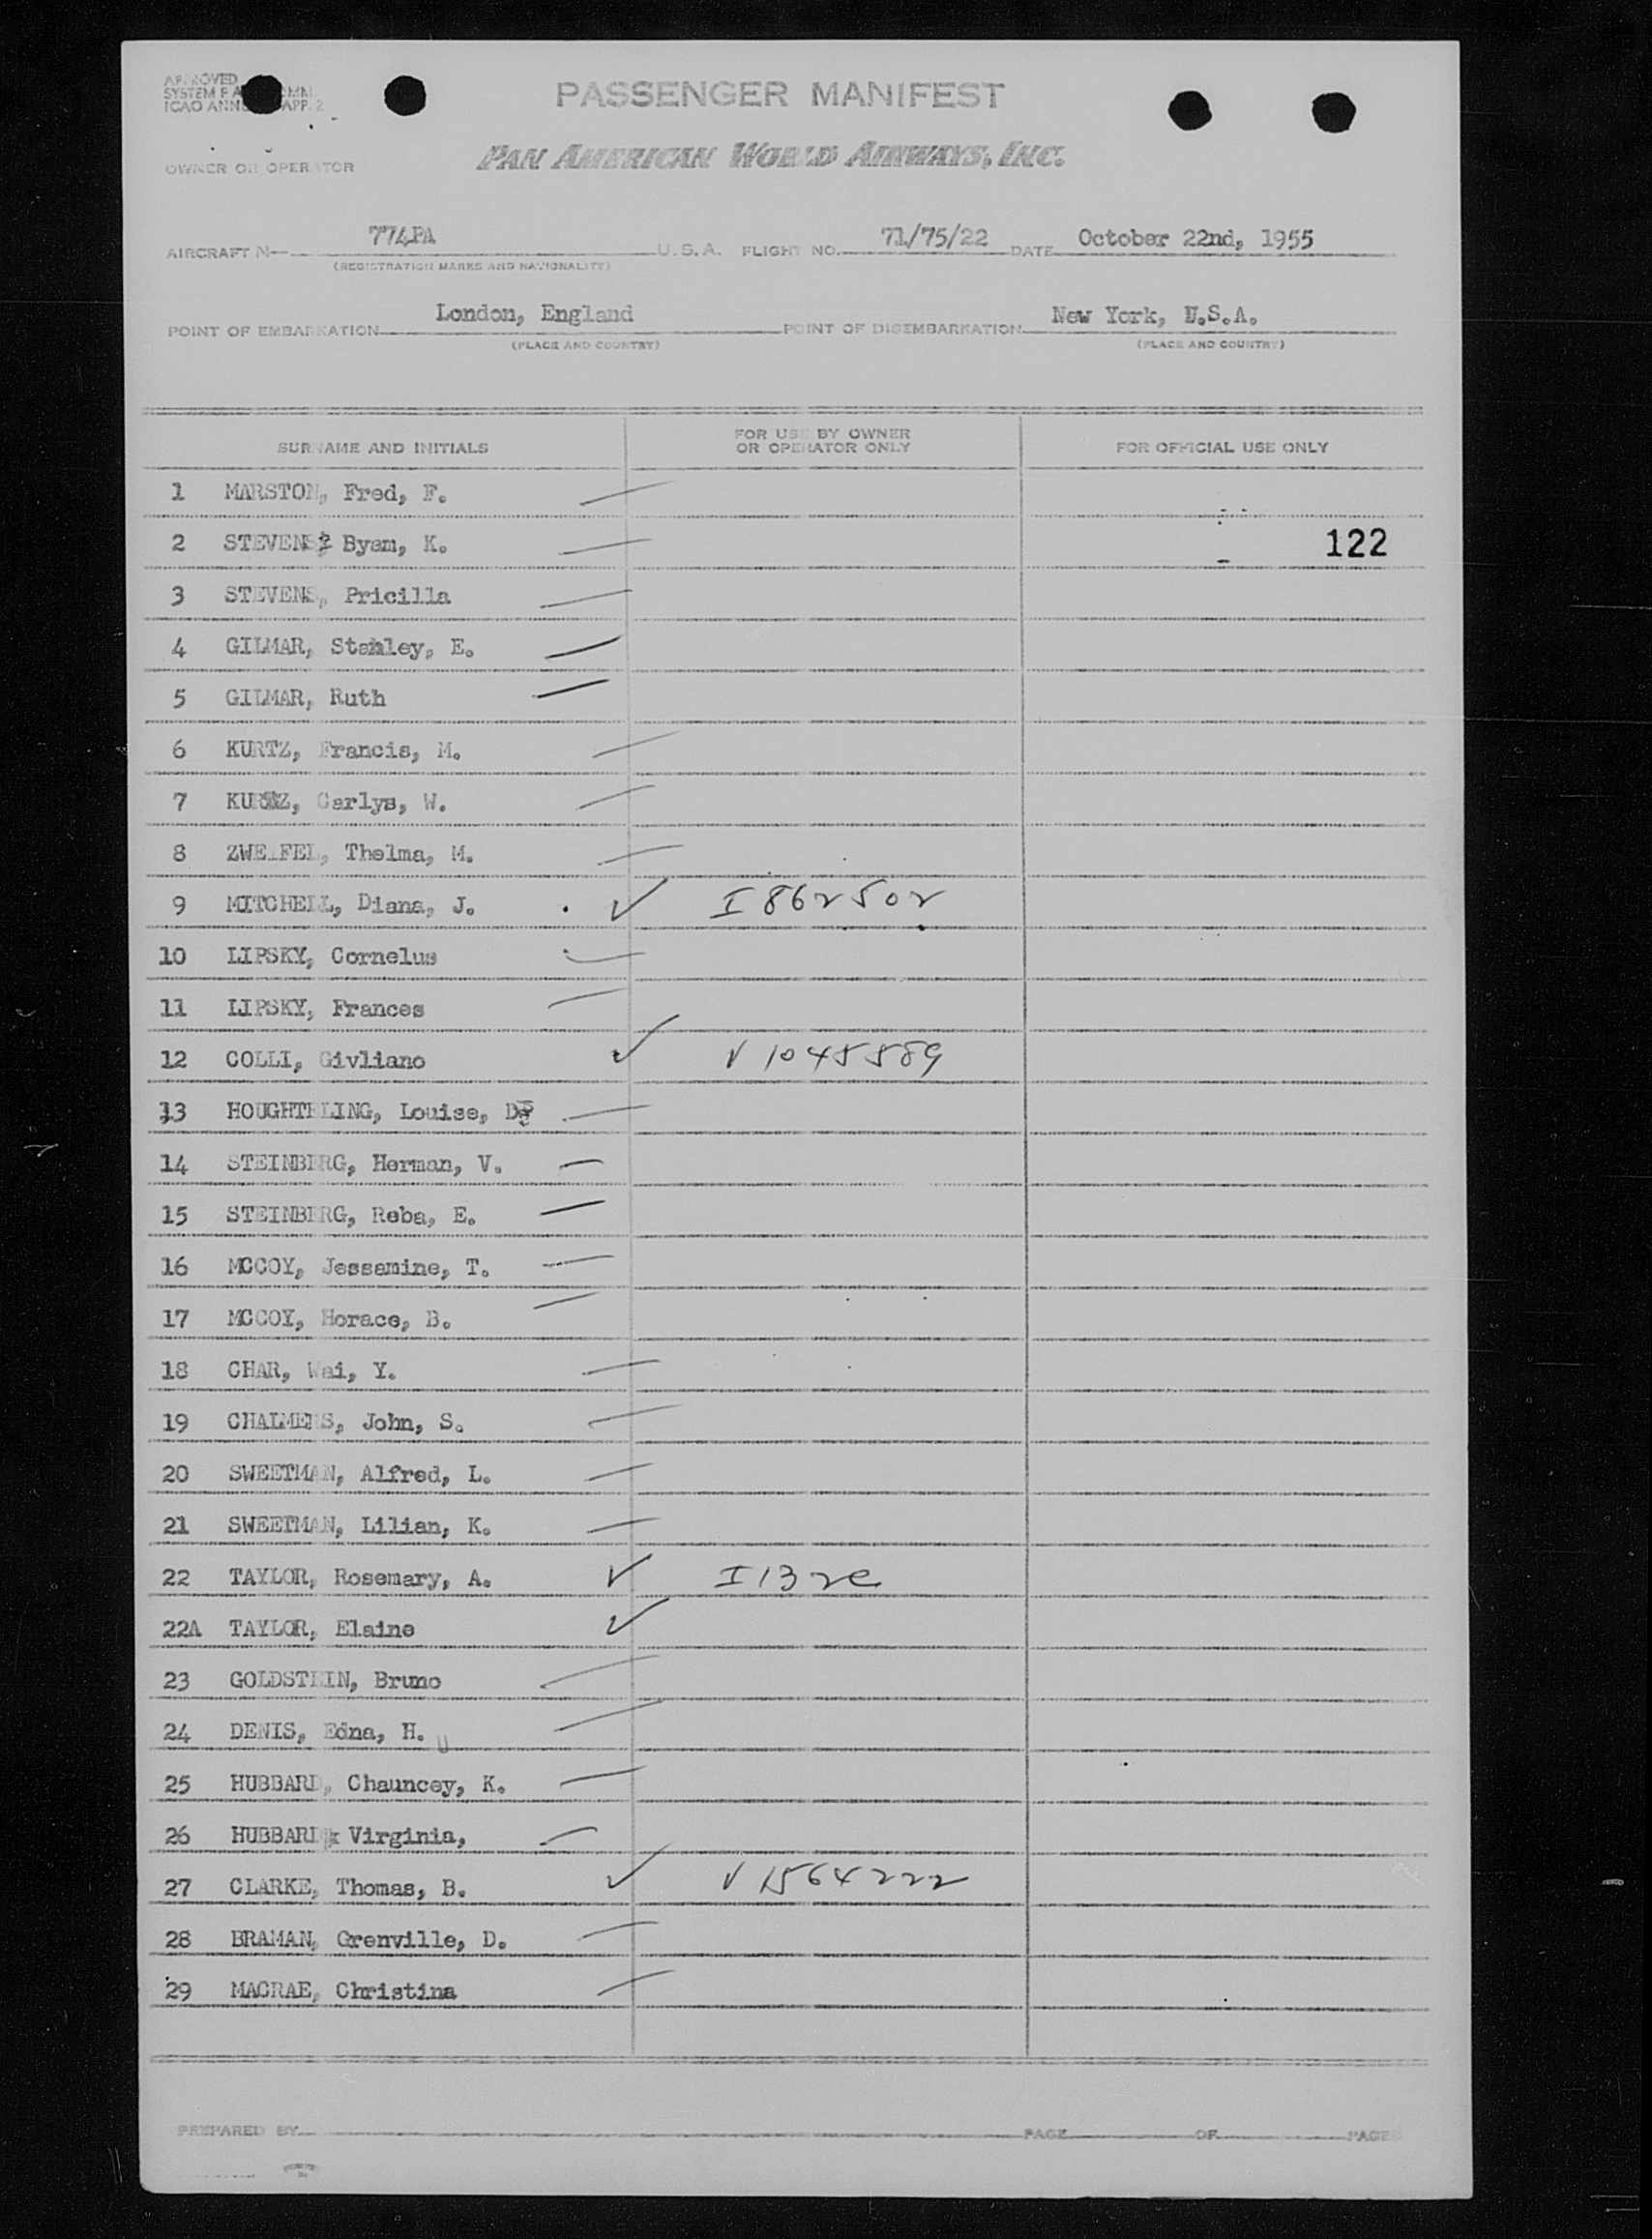 APPROVED
SYSTEM F A COMM.
ICAO ANNEX APP. 2
PASSENGER MANIFEST
OWNER OR OPERATOR
PAN AMERICAN WORLD AIRWAYS, INC.
AIRCRAFT N— 774PA U.S.A. FLIGHT NO. 71/75/22 DATE October 22nd, 1955
(REGISTRATION MARKS AND NATIONALITY)
POINT OF EMBARKATION London, England POINT OF DISEMBARKATION New York, U.S.A.
(PLACE AND COUNTRY) (PLACE AND COUNTRY)
SURNAME AND INITIALS FOR USE BY OWNER OR OPERATOR ONLY FOR OFFICIAL USE ONLY
1 MARSTON, Fred, F.
2 STEVENS, Byam, K. 122
3 STEVENS, Pricilla
4 GILMAR, Stanley, E.
5 GILMAR, Ruth
6 KURTZ, Francis, M.
7 KURTZ, Carlys, W.
8 ZWEIFEL, Thelma, M.
9 MITCHELL, Diana, J. I 862502
10 LIPSKY, Cornelus
11 LIPSKY, Frances
12 COLLI, Givliano V 1045589
13 HOUGHTELING, Louise, D
14 STEINBERG, Herman, V.
15 STEINBERG, Reba, E.
16 MCCOY, Jessamine, T.
17 MCCOY, Horace, B.
18 CHAR, Wai, Y.
19 CHALMERS, John, S.
20 SWEETMAN, Alfred, L.
21 SWEETMAN, Lilian, K.
22 TAYLOR, Rosemary, A. I 132e
22A TAYLOR, Elaine
23 GOLDSTEIN, Bruno
24 DENIS, Edna, H.
25 HUBBARD, Chauncey, K.
26 HUBBARD, Virginia,
27 CLARKE, Thomas, B. V 1564222
28 BRAMAN, Grenville, D.
29 MACRAE, Christina
PREPARED BY PAGE OF PAGES